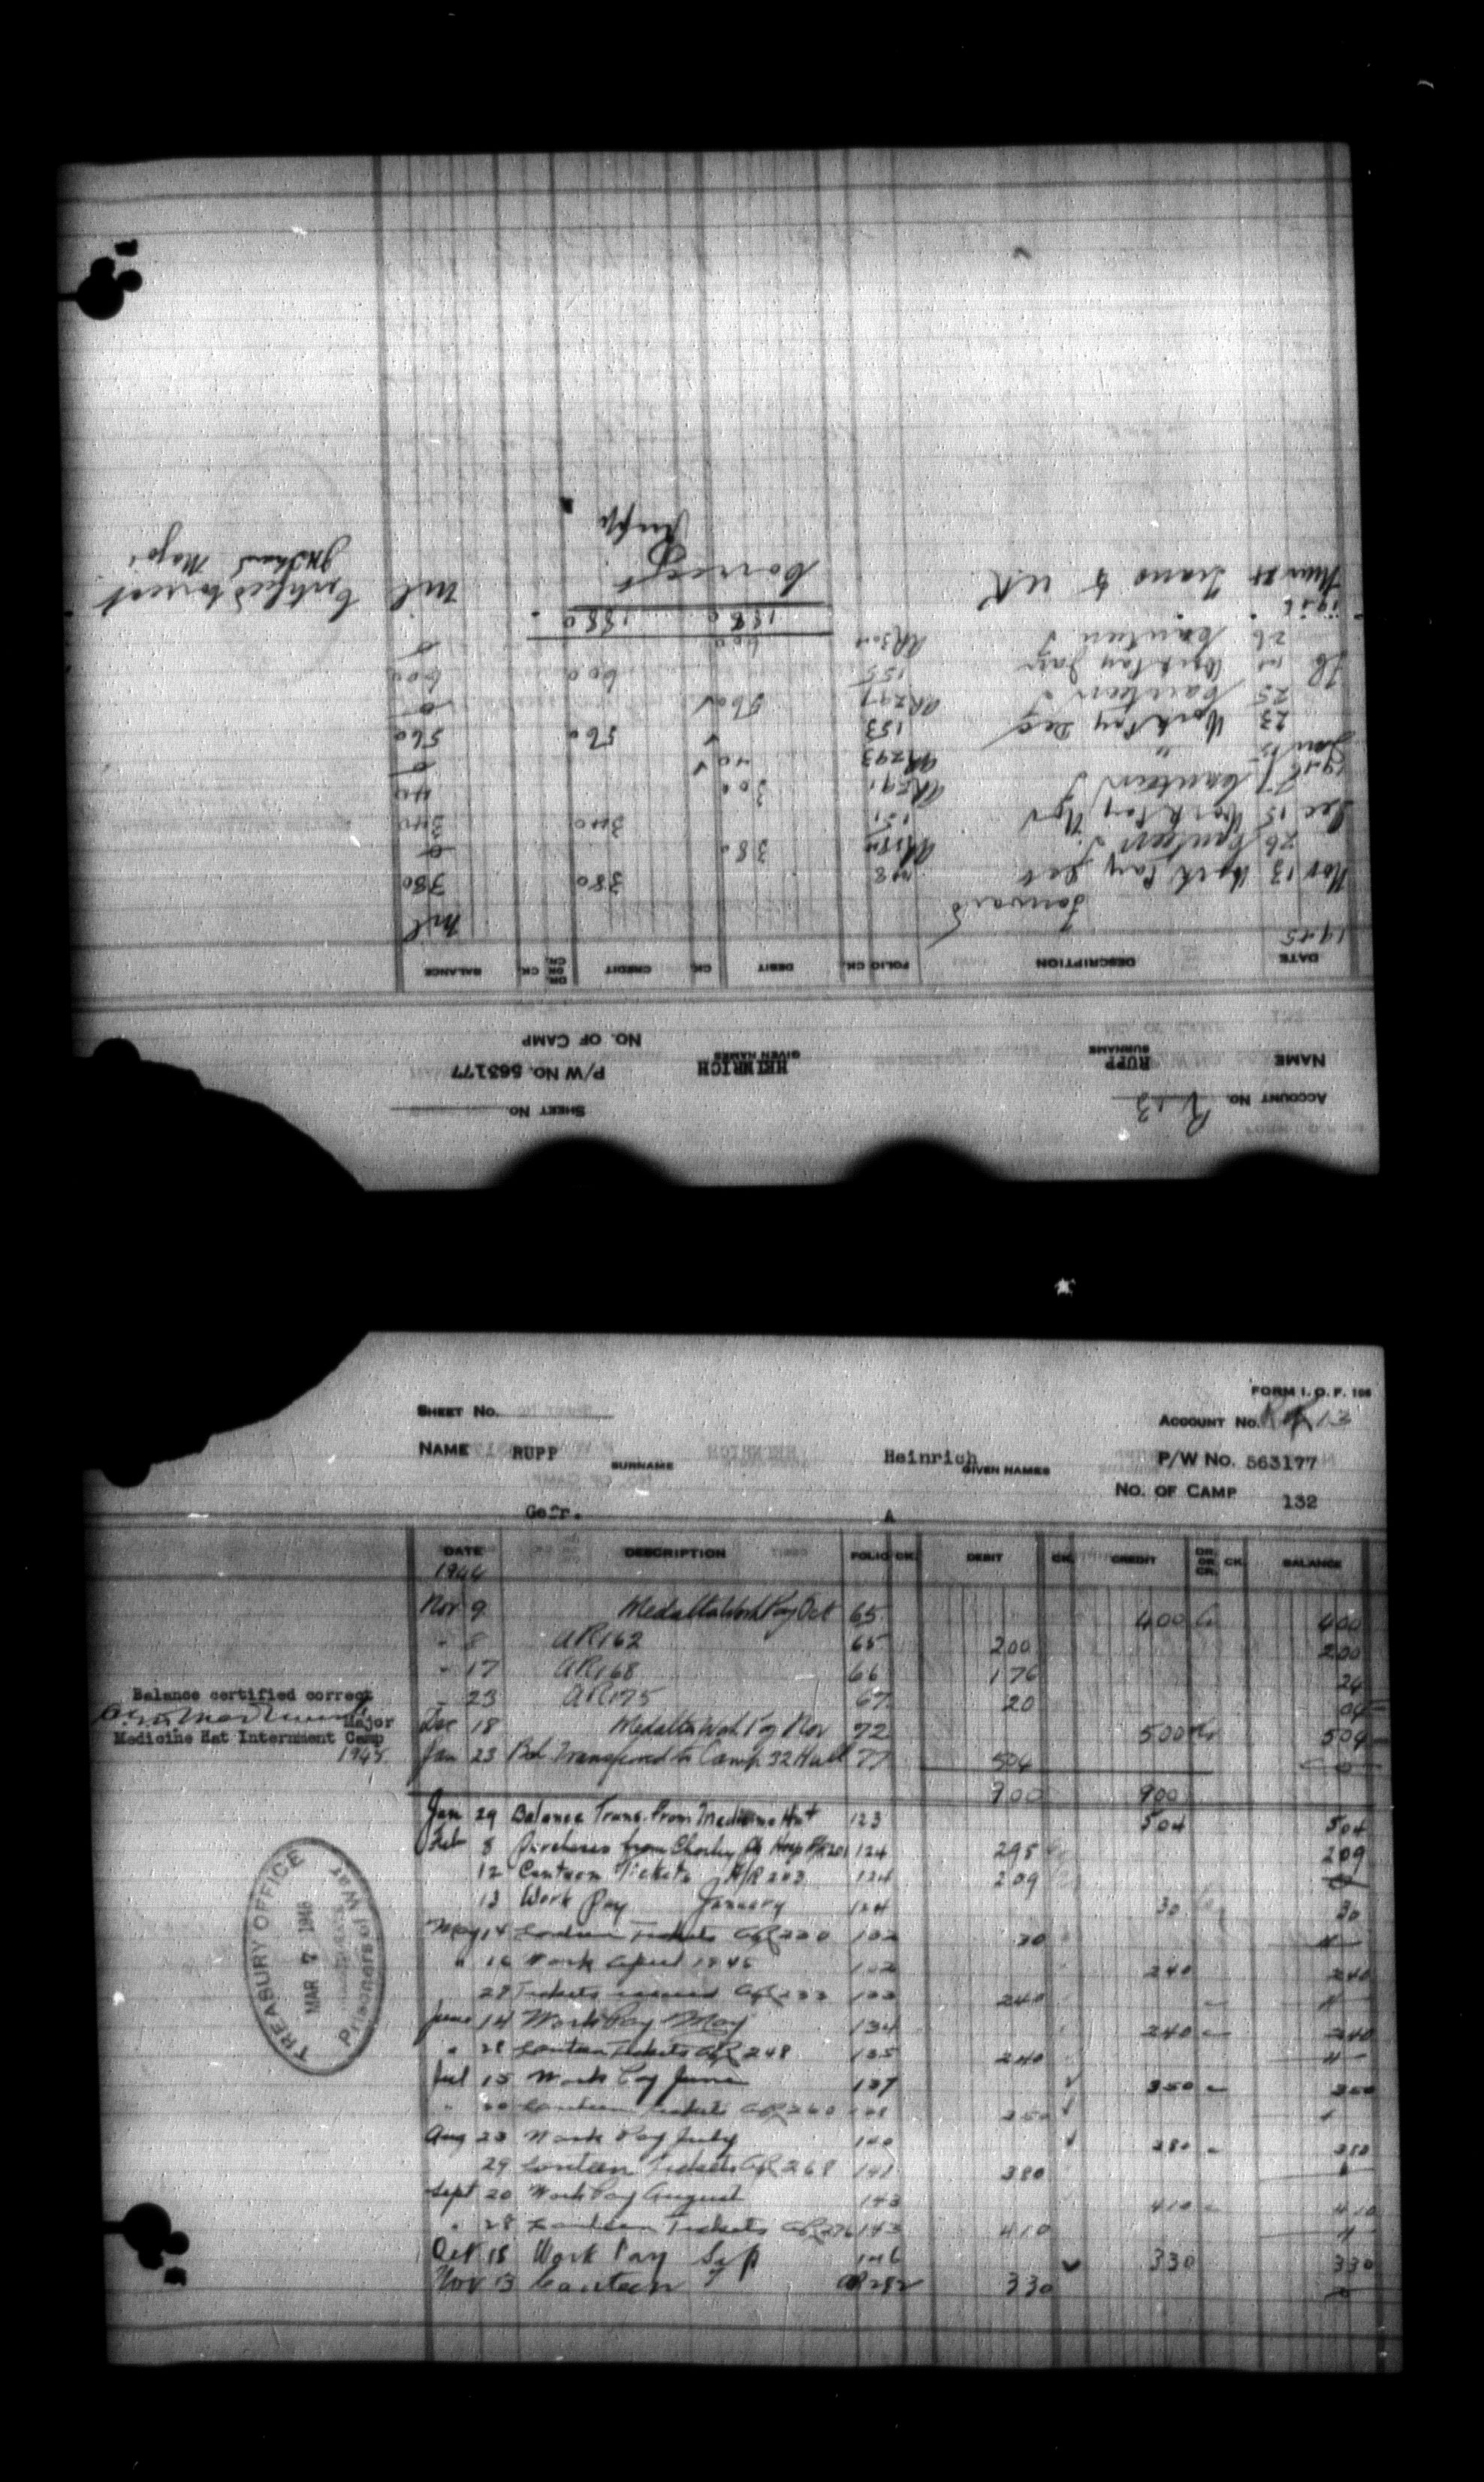 FORM I.O.F. 
SHEET No. ACCOUNT No. R 13
NAME RUPP SURNAME Heinrich GIVEN NAMES P/W No. 563177
No. OF CAMP 132
Gefr. A
DATE DESCRIPTION FOLIO CK. DEBIT CK. CREDIT DR. OR CR. CK. BALANCE
1944
Nov 9 Medalta Work Pay Oct 65 400 400
" 8 AR162 65 200 200
" 17 AR168 66 176 24
" 23 AR175 67 20 04
Dec 18 Medalta Work Pay Nov 72 500 504
Jan 23 Bal Transferred to Camp 32 Hull 77 504 0
900 900
Balance certified correct
Major
Medicine Hat Internment Camp
1945.
Jan 29 Balance Trans. From Medicine Hat 123 504 504
Feb 8 Purchases from Chorley Pk Hosp AR201 124 295 209
12 Canteen Tickets A/R 203 124 209
13 Work Pay January 124 30 30
May 14 Canteen Tickets AR220 132 30
" 16 Work April 1945 132 240 240
28 Tickets issued AR233 133 240
June 14 Work Pay May 134 240 240
" 28 Canteen Tickets AR248 135 240
Jul 15 Work Pay June 137 350 350
" 20 Canteen Tickets AR260 138 350
Aug 23 Work Pay July 140 380 380
29 Canteen Tickets AR268 141 380
Sept 20 Work Pay August 143 410 410
" 28 Canteen Tickets AR276 143 410
Oct 18 Work Pay Sep 146 330 330
Nov 13 Canteen T AR282 330 0
TREASURY OFFICE
MAR 7 1946
Prisoners of War
ACCOUNT No. R 13 SHEET No.
NAME RUPP SURNAME HEINRICH GIVEN NAMES P/W No. 563177
No. OF CAMP
DATE DESCRIPTION FOLIO CK. DEBIT CK. CREDIT DR. OR CR. CK. BALANCE
1945
Forward Nil
Nov 13 Work Pay Oct 148 380 380
26 Canteen T 380 0
Dec 15 Work Pay Nov 151 340 340
27 Canteen T AR291 300 40
1946
Jan 15 " AR293 40 0
23 Work Pay Dec 153 560 560
25 Canteen T AR297 560 0
Work Pay Jan 155 600 600
26 Canteen T 600 0
1880 1880
1946
Trans to UK Nil
Correct
Rupp
Certified Correct
Major